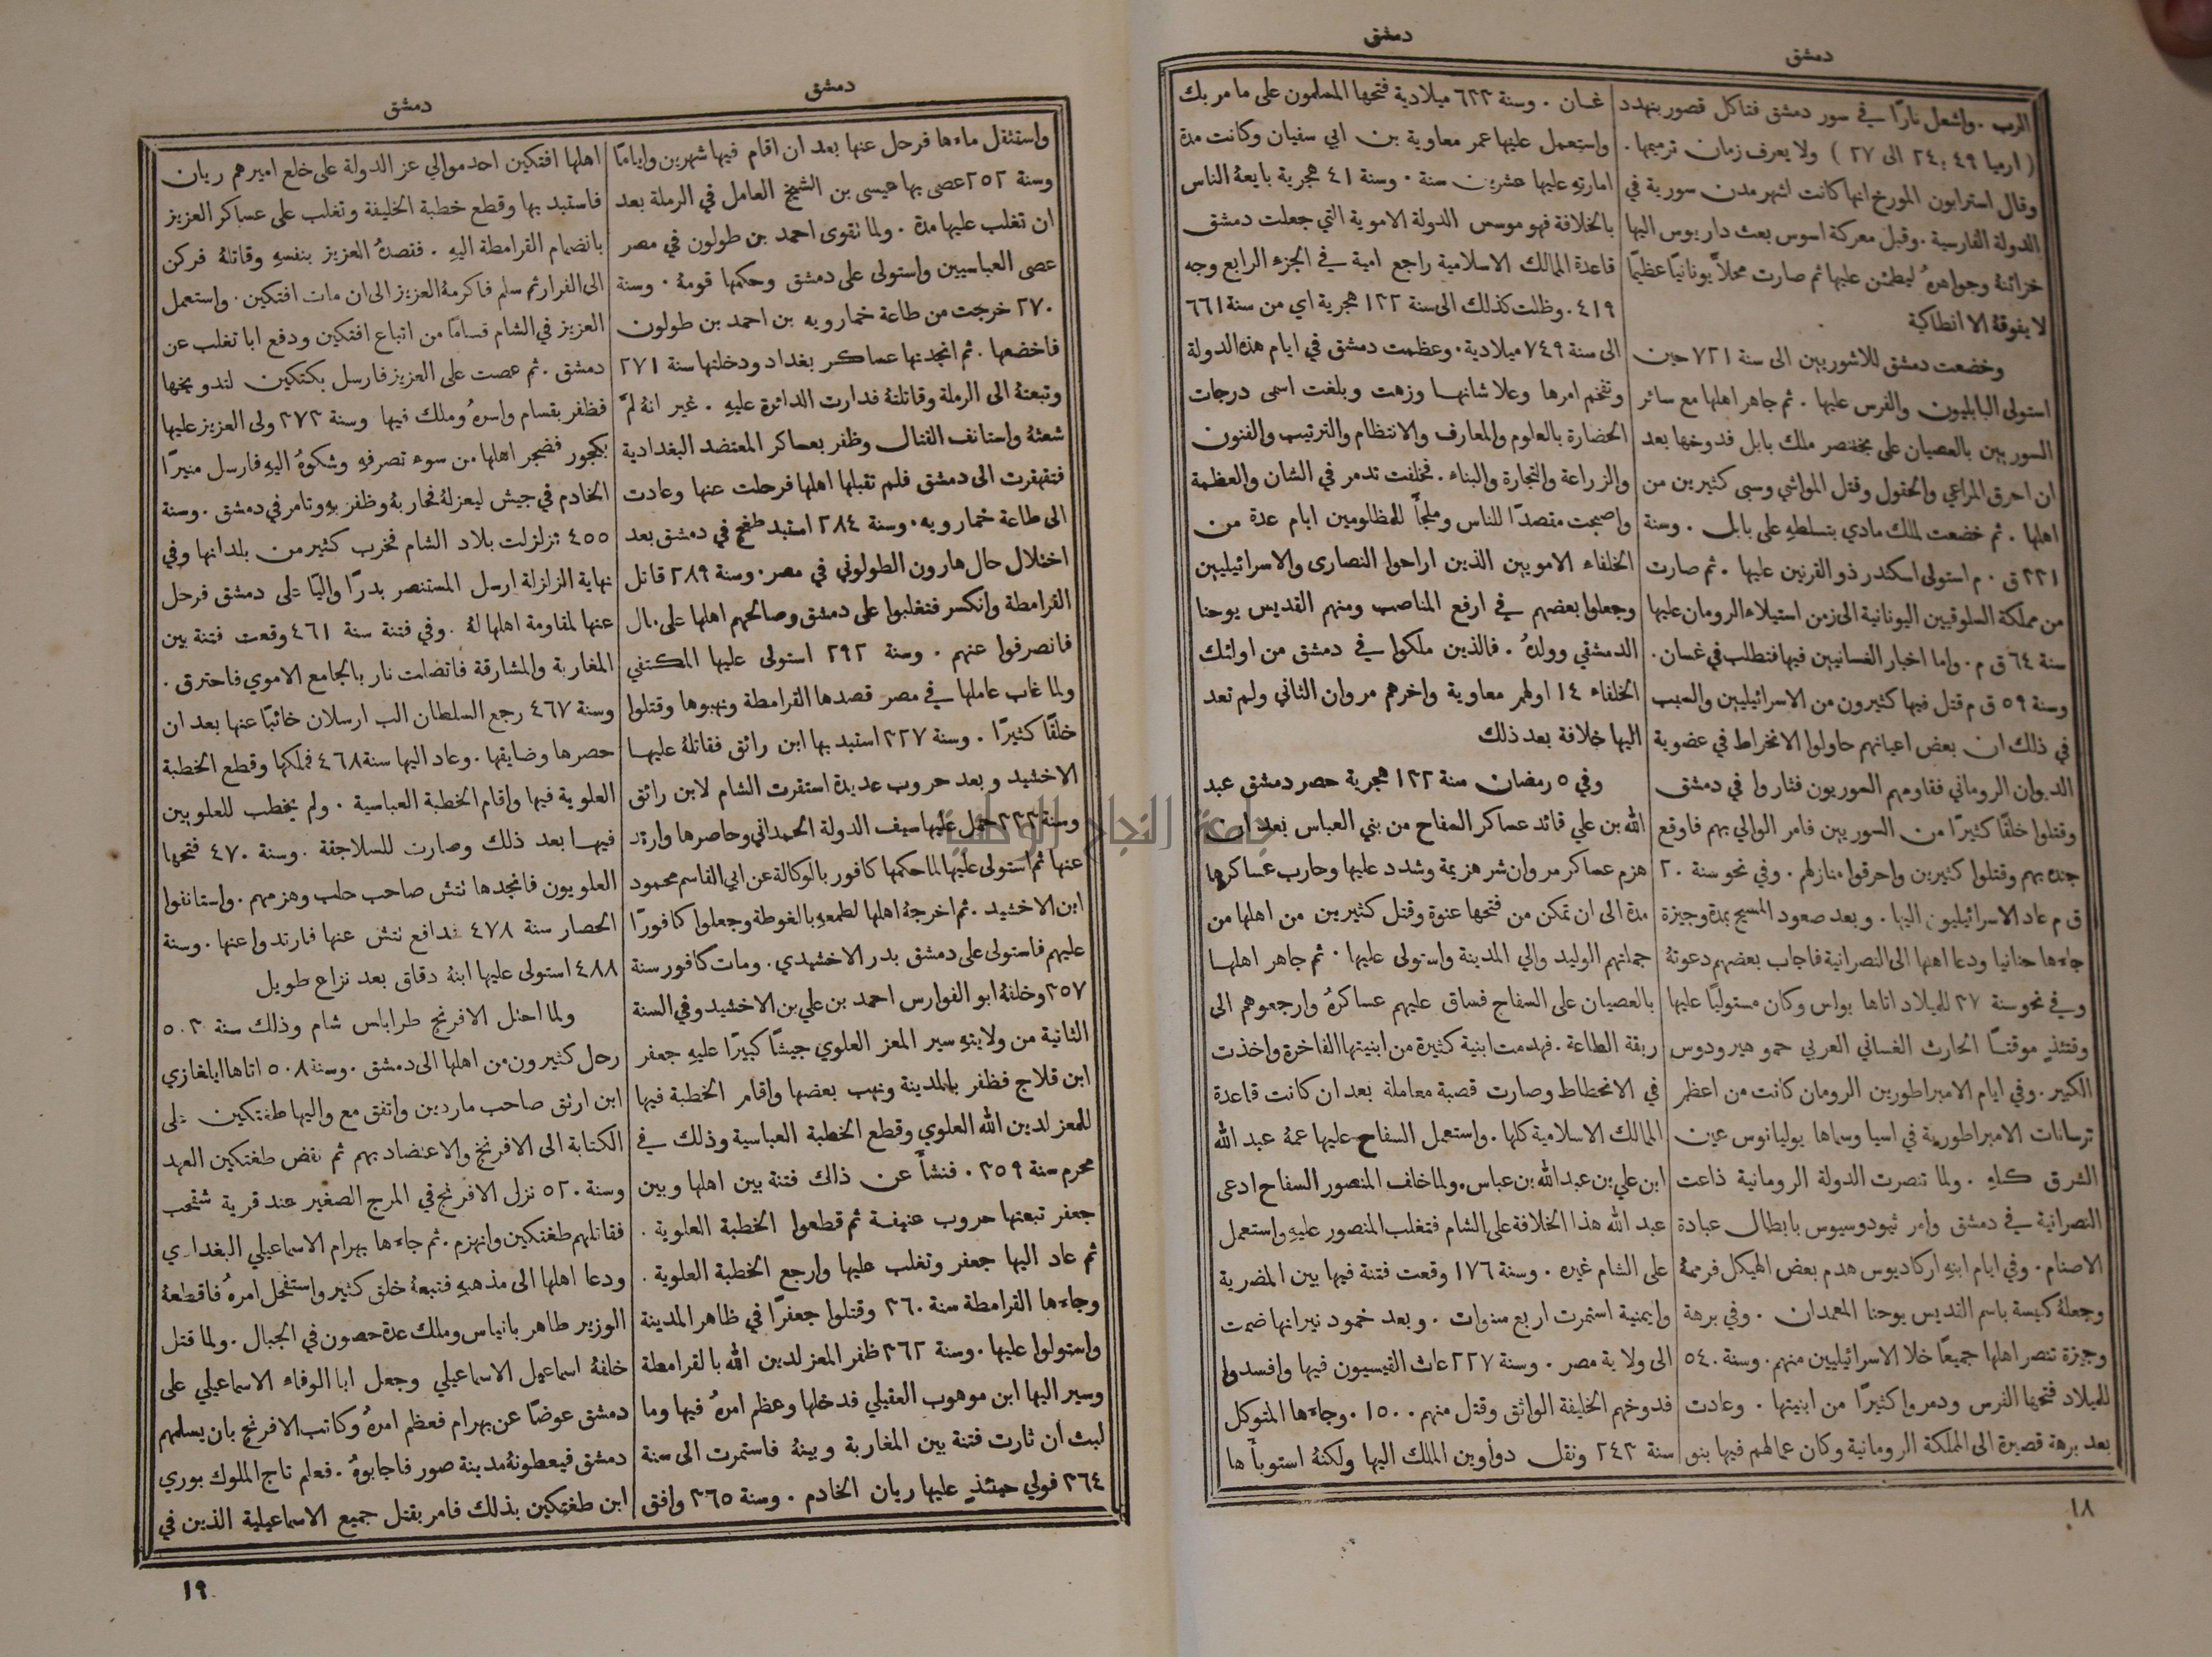 دمشق
دمشق
الرب . واشعل نارًا في سور دمشق فتاكل قصور بنهدد
( ارميا ٤٩ : ٢٤ الى ٢٧ ) ولا يعرف زمان ترميمها .
وقال استرابون المورخ انها كانت اشهر مدن سورية في
الدولة الفارسية . وقبل معركة اسوس بعث داريوس اليها
خزائنهُ وجواهرهُ ليطمئن عليها ثم صارت محلاً يونانيًا عظيمًا
لا يفوقهُ الا انطاكية
وخضعت دمشق للاشوريين الى سنة ٧٢١ حين
استولى البابليون والفرس عليها . ثم جاهر اهلها مع سائر
السوريين بالعصيان على بختنصر ملك بابل فدوخها بعد
ان احرق المراعي والحقول وقتل المواشي وسبى كثيرين من
اهلها . ثم خضعت لملك مادي بتسلطهِ على بابل . وسنة
٣٣١ ق . م استولى اسكندر ذو القرنين عليها . ثم صارت
من مملكة السلوقيين اليونانية الى زمن استيلاء الرومان عليها
سنة ٦٤ ق م . واما اخبار الغسانيين فيها فتطلب في غسان .
وسنة ٥٩ ق م قتل فيها كثيرون من الاسرائيليين والسبب
في ذلك ان بعض اعيانهم حاولوا الانخراط في عضوية
الديوان الروماني فقاومهم السوريون فثاروا في دمشق
وقتلوا خلقًا كثيرًا من السوريين فامر الوالي بهم فاوقع
جنده بهم وقتلوا كثيرين واحرقوا منازلهم . وفي نحو سنة ٢٠
ق م عاد الاسرائيليون اليها . وبعد صعود المسيح بمدة وجيزة
جاءها حنانيا ودعا اهلها الى النصرانية فاجاب بعضهم دعوتهُ
وفي نحو سنة ٣٧ للميلاد اتاها بولس وكان مستوليًا عليها
وقتئذٍ موقتًا الحارث الغساني العربي حمو هيرودوس
الكبير . وفي ايام الامبراطورين الرومان كانت من اعظم
ترسانات الامبراطورية في اسيا وسماها يوليانوس عين
الشرق كلهِ . ولما تنصرت الدولة الرومانية ذاعت
النصرانية في دمشق وامر ثيودوسيوس بابطال عبادة
الاصنام . وفي ايام ابنهِ اركاديوس هدم بعض الهيكل فرممهُ
وجعلهُ كنيسة باسم القديس يوحنا المعمدان . وفي برهة
وجيزة تنصر اهلها جميعًا خلا الاسرائيليين منهم . وسنة ٥٤٠
للميلاد فتحها الفرس ودمروا كثيرًا من ابنيتها . وعادت
بعد برهة قصيرة الى المملكة الرومانية وكان عمالهم فيها بنو
غسان . وسنة ٦٣٣ ميلادية فتحها المسلمون على ما مر بك
واستعمل عليها عمر معاوية بن ابي سفيان وكانت مدة
امارتهِ عليها عشرين سنة . وسنة ٤١ هجرية بايعهُ الناس
بالخلافة فهو موسس الدولة الاموية التي جعلت دمشق
قاعدة الممالك الاسلامية راجع امية في الجزء الرابع وجه
٤١٩ . وظلت كذلك الى سنة ١٣٢ هجرية اي من سنة ٦٦١
الى سنة ٧٤٩ ميلادية . وعظمت دمشق في ايام هذه الدولة
وتفخم امرها وعلا شانهــا وزهت وبلغت اسمى درجات
الحضارة بالعلوم والمعارف والانتظام والترتيب والفنون
والزراعة والتجارة والبناء . فخلفت تدمر في الشان والعظمة
واصبحت مقصدًا للناس وملجأً للمظلومين ايام عدة من
الخلفاء الامويين الذين اراحوا النصارى والاسرائيليين
وجعلوا بعضهم في ارفع المناصب ومنهم القديس يوحنا
الدمشقي وولدهُ . فالذين ملكوا في دمشق من اولئك
الخلفاء ١٤ اولهم معاوية واخرهم مروان الثاني ولم تعد
اليها خلافة بعد ذلك
وفي ٥ رمضان سنة ١٣٢ هجرية حصر دمشق عبد
الله بن علي قائد عساكر السفاح من بني العباس بعد ان
هزم عساكر مروان شر هزيمة وشدد عليها وحارب عساكرها
مدة الى ان تمكن من فتحها عنوة وقتل كثيرين من اهلها من
جملتهم الوليد والي المدينة واستولى عليها . ثم جاهر اهلهــا
بالعصيان على السفاح فساق عليهم عساكرهُ وارجعوهم الى
ربقة الطاعة . فهدمت ابنية كثيرة من ابنيتها الفاخرة واخذت
في الانحطاط وصارت قصبة معاملة بعد ان كانت قاعدة
الممالك الاسلامية كلها . واستعمل السفاح عليها عمهُ عبد الله
ابن علي بن عبد الله بن عباس . ولما خلف المنصور السفاح ادعى
عبد الله هذا الخلافة على الشام فتغلب المنصور عليهِ واستعمل
على الشام غيره . وسنة ١٧٦ وقعت فتنة فيها بين المضرية
واليمنية استمرت اربع سنوات . وبعد خمود نيرانها ضمت
الى ولاية مصر . وسنة ٢٢٧ عاث القيسيون فيها وافسدوا
فدوخهم الخليفة الواثق وقتل منهم ١٥٠٠ . وجاءها المتوكل
سنة ٢٤٣ ونقل دواوين الملك اليها ولكنهُ استوبأ ها
١٨
دمشق
دمشق
واستثقل ماءها فرحل عنها بعد ان اقام فيها شهرين واياما
وسنة ٢٥٢ عصى بها عيسى بن الشيخ العامل في الرملة بعد
ان تغلب عليها مدة . ولما تقوى احمد بن طولون في مصر
عصى العباسيين واستولى على دمشق وحكمها قومهُ . وسنة
٢٧٠ خرجت من طاعة خمارويه بن احمد بن طولون
فاخضعها . ثم انجدتها عساكر بغداد ودخلتها سنة ٢٧١
وتبعتهُ الى الرملة وقاتلتهُ فدارت الدائرة عليهِ . غير انهُ لمَّ
شعثهُ واستانف القتال وظفر بعساكر المعتضد البغدادية
فتقهقرت الى دمشق فلم تقبلها اهلها فرحلت عنها وعادت
الى طاعة خمارويه . وسنة ٢٨٤ استبد طغج في دمشق بعد
اختلال حال هارون الطولوني في مصر . وسنة ٢٨٩ قاتل
القرامطة وانكسر فتغلبوا على دمشق وصالحهم اهلها على مال
فانصرفوا عنهم . وسنة ٢٩٢ استولى عليها المكتفي
ولما غاب عاملها في مصر قصدها القرامطة ونهبوها وقتلوا
خلقًا كثيرًا . وسنة ٣٢٧ استبد بها ابن رائق فقاتلهُ عليهــا
الاخشيد وبعد حروب عديدة استقرت الشام لابن رائق
وسنة ٣٣٣ حمل عليها سيف الدولة الحمداني وحاصرها وارتد
عنها ثم استولى عليها لما حكمها كافور بالوكالة عن ابي القاسم محمود
ابن الاخشيد . ثم اخرجهُ اهلها لطمعهِ بالغوطة وجعلوا كافورًا
عليهم فاستولى على دمشق بدر الاخشيدي . ومات كافور سنة
٣٥٧ وخلفهُ ابو الفوارس احمد بن علي بن الاخشيد وفي السنة
الثانية من ولايتهِ سير المعز العلوي جيشًا كبيرًا عليهِ جعفر
ابن فلاح فظفر بالمدينة ونهب بعضها واقام الخطبة فيها
للمعز لدين الله العلوي وقطع الخطبة العباسية وذلك في
محرم سنة ٣٥٩ . فنشأ عن ذلك فتنة بين اهلها وبين
جعفر تبعتها حروب عنيفة ثم قطعوا الخطبة العلوية .
ثم عاد اليها جعفر وتغلب عليها وارجع الخطبة العلوية .
وجاءها القرامطة سنة ٣٦٠ وقتلوا جعفرًا في ظاهر المدينة
واستولوا عليها . وسنة ٣٦٢ ظفر المعز لدين الله بالقرامطة
وسير اليها ابن موهوب العقيلي فدخلها وعظم امرهُ فيها وما
لبث ان ثارت فتنة بين المغاربة وبينهُ فاستمرت الى سنة
٣٦٤ فولي حينئذٍ عليها ريان الخادم . وسنة ٣٦٥ وافق
اهلها افتكين احد موالي عز الدولة على خلع اميرهم ريان
فاستبد بها وقطع خطبة الخليفة وتغلب على عساكر العزيز
بانضمام القرامطة اليهِ . فقصدهُ العزيز بنفسهِ وقاتلهُ فركن
الى الفرار ثم سلم فاكرمهُ العزيز الى ان مات افتكين . واستعمل
العزيز في الشام قسامًا من اتباع افتكين ودفع ابا تغلب عن
دمشق . ثم عصت على العزيز فارسل بكتكين لتدويخها
فظفر بقسام واسرهُ وملك فيها وسنة ٣٧٣ ولى العزيز عليها
بكجور فضجر اهلها من سوء تصرفهِ وشكوهُ اليهِ فارسل منيرًا
الخادم في جيش ليعزلهُ فحاربهُ وظفر بهِ وتامر في دمشق . وسنة
٤٥٥ تزلزلت بلاد الشام فخرب كثير من بلدانها وفي
نهاية الزلزلة ارسل المستنصر بدرًا واليًا على دمشق فرحل
عنها لمقاومة اهلها لهُ . وفي فتنة سنة ٤٦١ وقعت فتنة بين
المغاربة والمشارقة فاتصلت نار بالجامع الاموي فاحترق .
وسنة ٤٦٧ رجع السلطان الب ارسلان خائبًا عنها بعد ان
حصرها وضايقها . وعاد اليها سنة ٤٦٨ فملكها وقطع الخطبة
العلوية فيها واقام الخطبة العباسية . ولم يخطب للعلويين
فيهــا بعد ذلك وصارت للسلاجقة . وسنة ٤٧٠ فتحها
العلويون فانجدها تتش صاحب حلب وهزمهم . واستانفوا
الحصار سنة ٤٧٨ فدافع تتش عنها فارتدوا عنها . وسنة
٤٨٨ استولى عليها ابنهُ دقاق بعد نزاع طويل
ولما احتل الافرنج طرابلس شام وذلك سنة ٥٠٣
رحل كثيرون من اهلها الى دمشق . وسنة ٥٠٨ اتاها ايلغازي
ابن ارتق صاحب ماردين واتفق مع واليها طغتكين على
الكتابة الى الافرنج والاعتضاد بهم ثم نقض طغتكين العهد
وسنة ٥٢٠ نزل الافرنج في المرج الصغير عند قرية شقحب
فقاتلهم طغتكين وانهزم . ثم جاءها بهرام الاسماعيلي البغدادي
ودعا اهلها الى مذهبهِ فتبعهُ خلق كثير واستفحل امرهُ فاقطعهُ
الوزير طاهر بانياس وملك عدة حصون في الجبال . ولما قتل
خلفهُ اسماعيل الاسماعيلي وجعل ابا الوفاء الاسماعيلي على
دمشق عوضًا عن بهرام فعظم امرهُ وكاتب الافرنج بان يسلمهم
دمشق فيعطونهُ مدينة صور فاجابوهُ . فعلم تاج الملوك بوري
ابن طغتكين بذلك فامر بقتل جميع الاسماعيلية الذين في
١٩
جامعة النجاح الوطنية